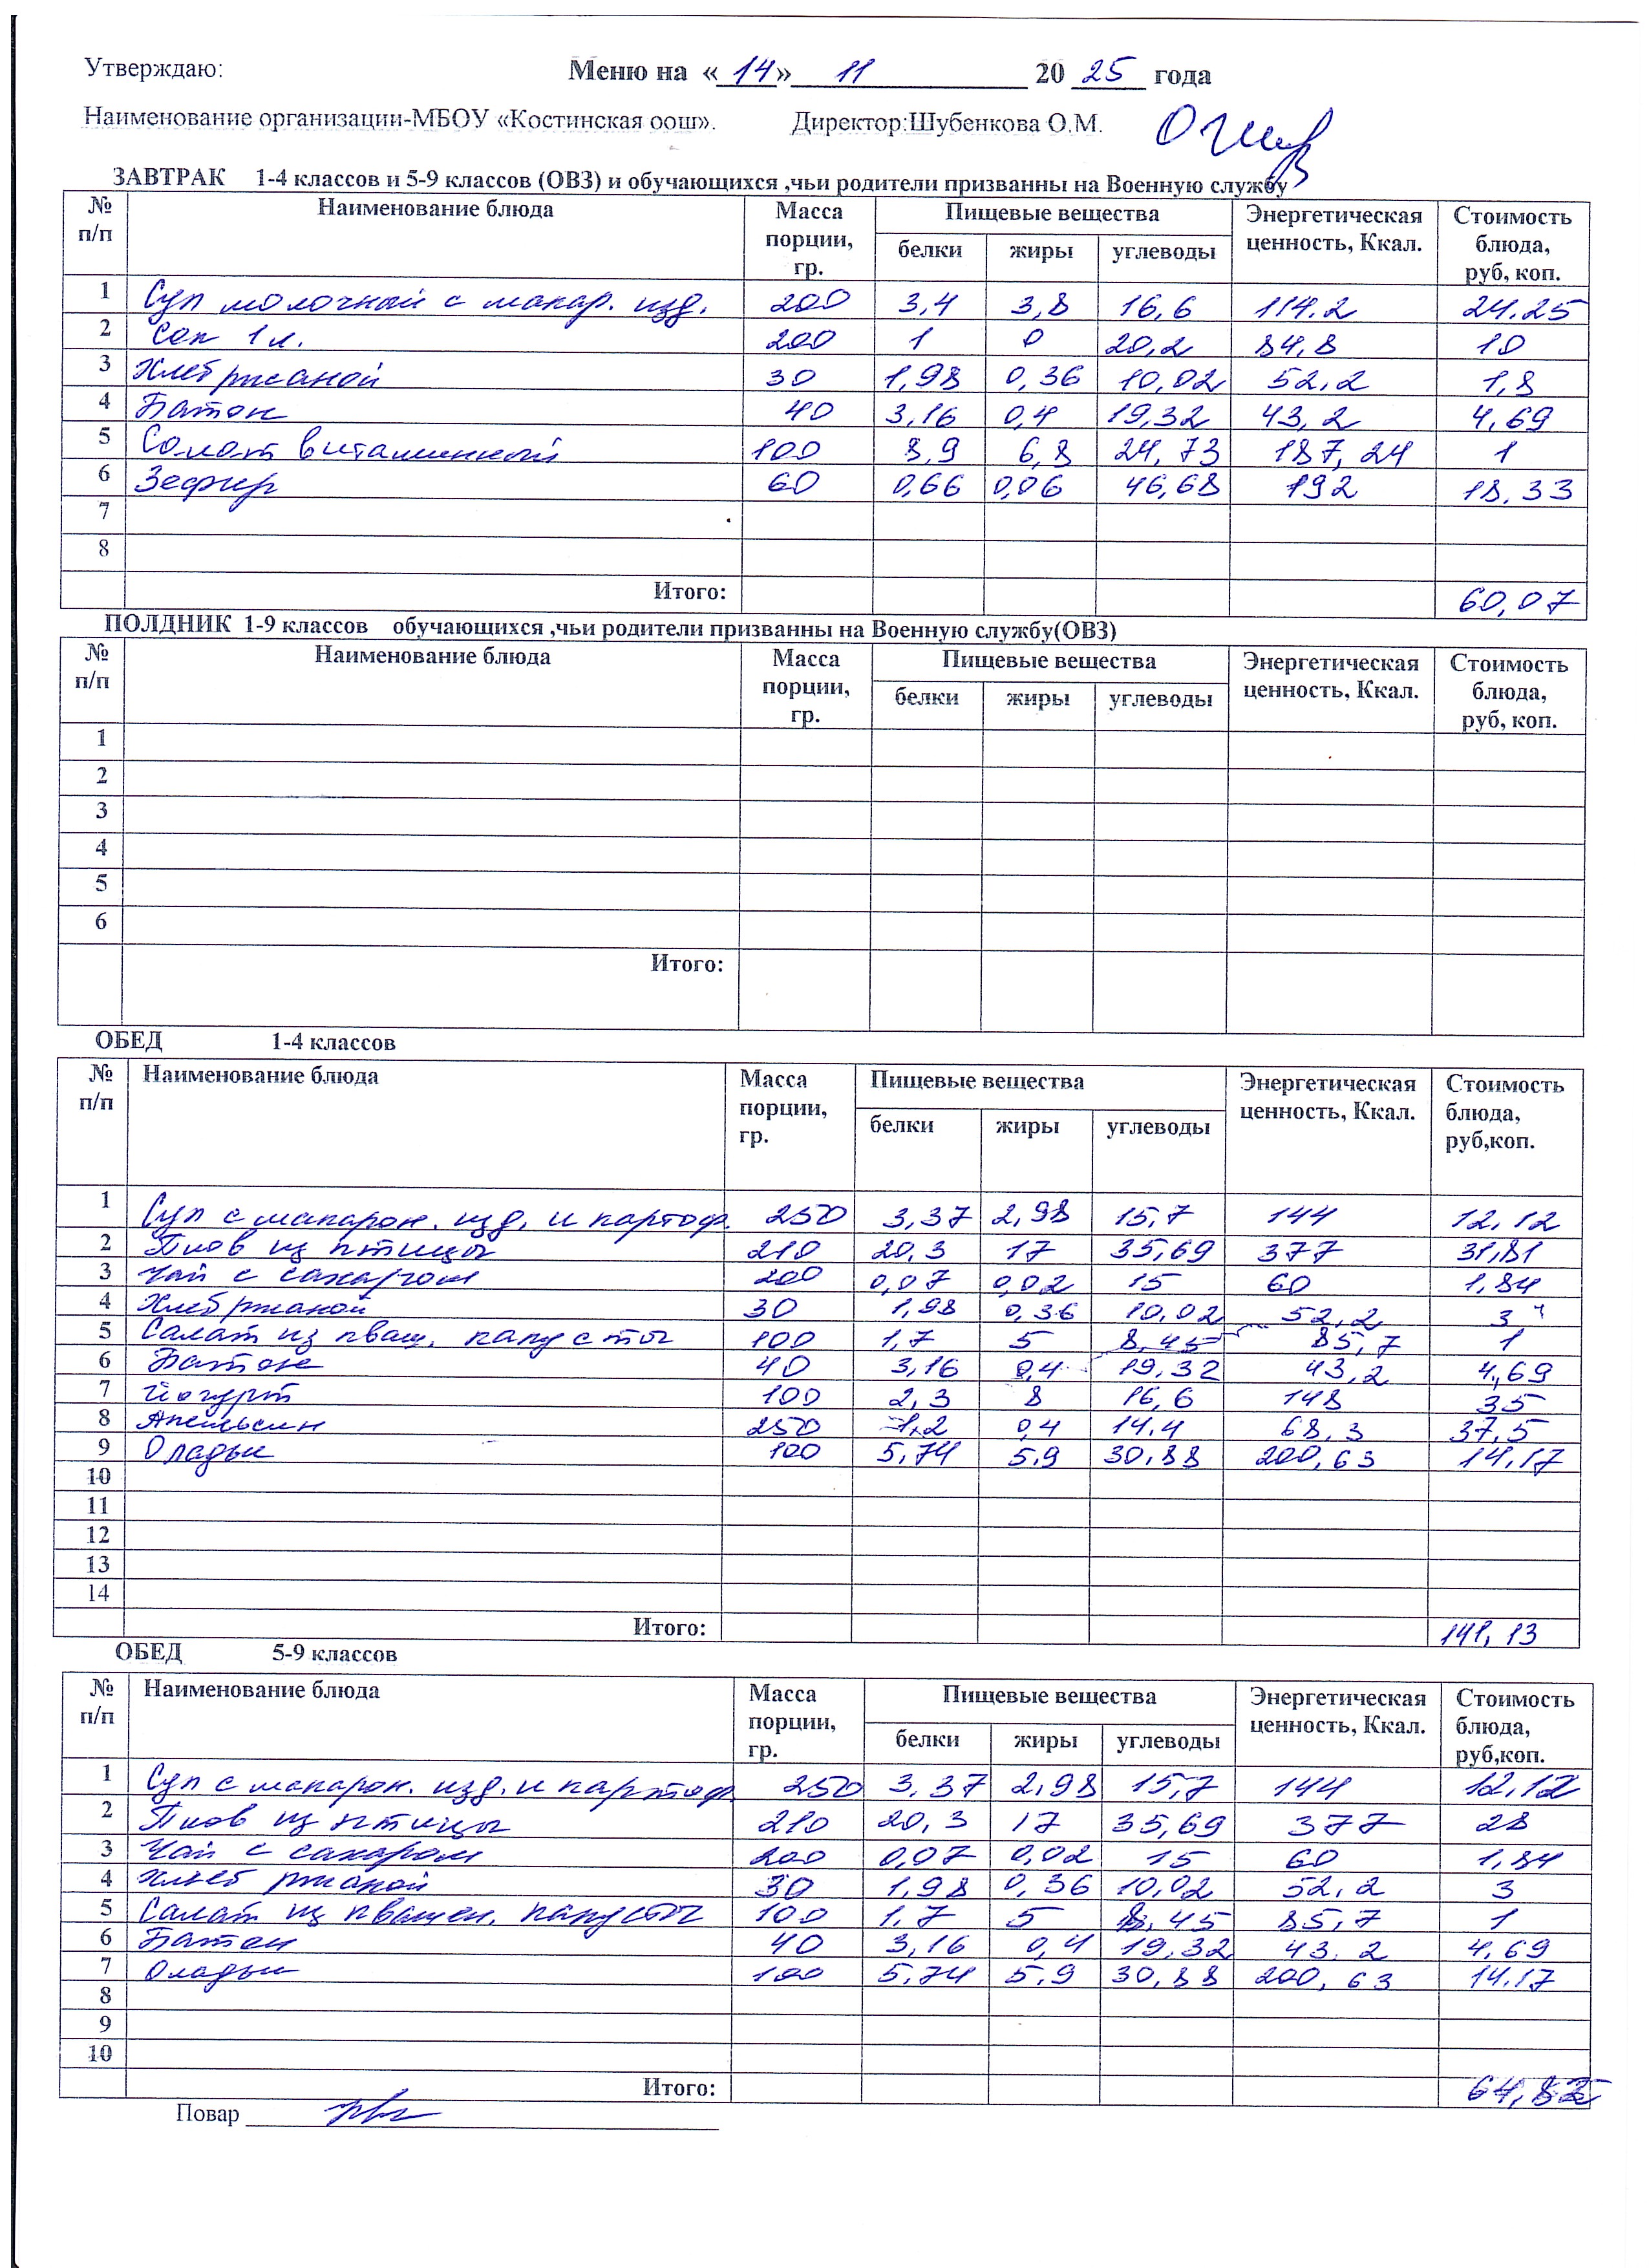 Утверждаю: Меню на « 14 » 11 20 25 года
Наименование организации-МБОУ «Костинская оош». Директор:Шубенкова О.М.
ЗАВТРАК 1-4 классов и 5-9 классов (ОВЗ) и обучающихся ,чьи родители призванны на Военную службу
№ п/п Наименование блюда Масса порции, гр. Пищевые вещества Энергетическая ценность, Ккал. Стоимость блюда, руб, коп.
белки жиры углеводы
1 Суп молочный с макар. изд. 200 3,4 3,8 16,6 114.2 24.25
2 Сок 1л. 200 1 0 20,2 84,8 10
3 Хлеб ржаной 30 1,98 0,36 10,02 52,2 1,8
4 Батон 40 3,16 0,4 19,32 43,2 4,69
5 Салат витаминный 100 8,9 6,8 24,73 187,24 1
6 Зефир 60 0,66 0,06 46,68 192 18.33
7
8
Итого: 60,07
ПОЛДНИК 1-9 классов обучающихся ,чьи родители призванны на Военную службу(ОВЗ)
№ п/п Наименование блюда Масса порции, гр. Пищевые вещества Энергетическая ценность, Ккал. Стоимость блюда, руб, коп.
белки жиры углеводы
1
2
3
4
5
6
Итого:
ОБЕД 1-4 классов
№ п/п Наименование блюда Масса порции, гр. Пищевые вещества Энергетическая ценность, Ккал. Стоимость блюда, руб,коп.
белки жиры углеводы
1 Суп с макарон. изд. и картоф. 250 3,37 2,98 15,7 144 12,12
2 Плов из птицы 210 20,3 17 35,69 377 31,81
3 Чай с сахаром 200 0,07 0,02 15 60 1,84
4 Хлеб ржаной 30 1,98 0,36 10,02 52,2 3
5 Салат из кваш. капусты 100 1,7 5 8,45 85,7 1
6 Батон 40 3,16 0,4 19,32 43,2 4,69
7 Йогурт 100 2,3 8 16,6 148 35
8 Апельсин 250 1,2 0,4 14.4 68,3 37,5
9 Оладьи 100 5,74 5,9 30,88 200,63 14,17
10
11
12
13
14
Итого: 141,13
ОБЕД 5-9 классов
№ п/п Наименование блюда Масса порции, гр. Пищевые вещества Энергетическая ценность, Ккал. Стоимость блюда, руб,коп.
белки жиры углеводы
1 Суп с макарон. изд. и картоф. 250 3,37 2,98 15,7 144 12,12
2 Плов из птицы 210 20,3 17 35,69 377 28
3 Чай с сахаром 200 0,07 0,02 15 60 1,84
4 Хлеб ржаной 30 1,98 0,36 10,02 52,2 3
5 Салат из квашен. капусты 100 1,7 5 8,45 85,7 1
6 Батон 40 3,16 0,4 19,32 43.2 4,69
7 Оладьи 100 5,74 5,9 30,88 200,63 14.17
8
9
10
Итого: 64,82
Повар